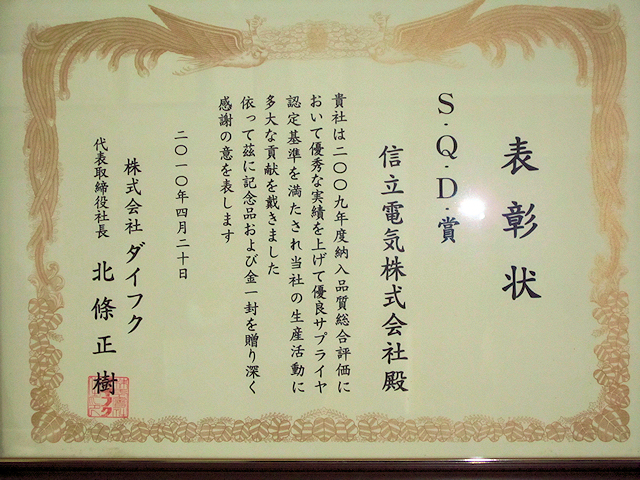 表彰状
S・Q・D・賞
信立電気株式会社殿
貴社は二〇〇九年度納入品質総合評価に
おいて優秀な実績を上げて優良サプライヤ
認定基準を満たされ当社の生産活動に
多大な貢献を戴きました
依って茲に記念品および金一封を贈り深く
感謝の意を表します
二〇一〇年四月二十日
株式会社ダイフク
代表取締役社長 北條正樹